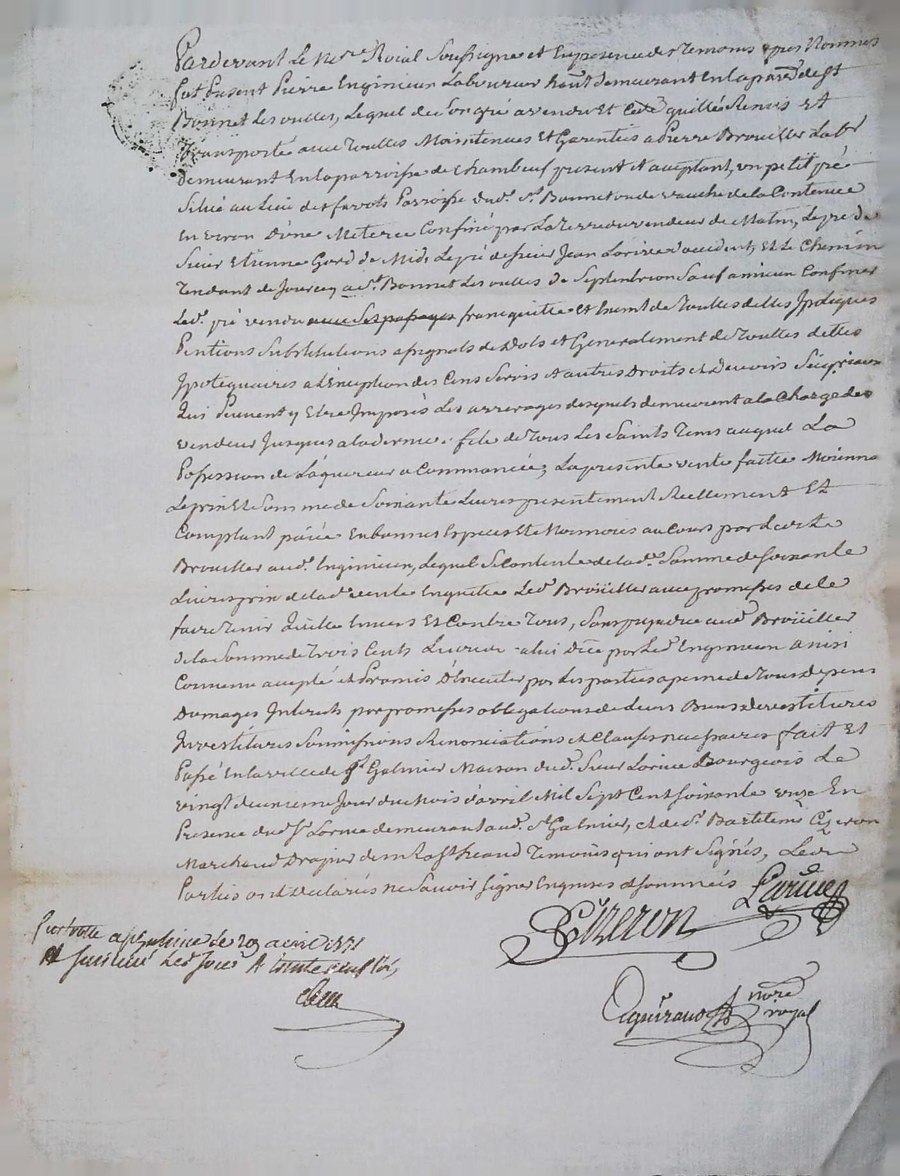 Pardevant Le Nore Roial Soussigne et En presence des Temoins apres Nommes
fut Present Pierre Enginieux Laboureur hant demeurant En la parsse de st
Bonnet Les oulles, Lequel de Son gré a vendu Et Cedé quitté Remis Et
Transporté avec Toultes Maintenues Et Garenties a Pierre Brouiller Labr
demeurant En la parroisse de Chambeuf present et aceptant, un petit pré
Situé au Lieu de Parroisse dud. st. Bonnet de la Contenee
Environ D'une Meteree Confiné par La Terre du vendeur de Matin, Le pré de
Sieur Etienne Gord de Midi Le pré de sieur Jean Lorize d'accident, Et Le Chemin
Tendant de a st. Bonnet Les oulles de Septentrion Sauf a mieux Confiner
Led. pré vendu avec Ses passages franc quitte Et de Touttes dettes Ipoteques
Pentions Substitutions assignats de Dots et Generalement de Touttes dettes
Ipotequaires a L'Exeption des Cens Servis et autres Droits et Devoirs
Qui Peuvent y Etre Imposés Les arrerages desquels demeurent a la Charge du
vendeur Jusques a la derniere fete de Tous Les Saints Tems auquel La
Possession de L'aquereur a Commancée; La presente vente faitte Moienna
Le prix Et Somme de Soixante Livres presentement Reellement Et
Comptant paiée En bonnes Especes Et au Cours par Led.
Brouiller aud. Enginieux, Lequel Se Contente de lad. Somme de soixante
Livres prix de lad. vente En quitte Led. Broüiller avec promesses de le
faire Tenir Quitte Envers Et Contre Tous, Sans prejudice aud. Broüiller
de la Somme de Trois Cents Livres a lui Düe par Led. Enginieux ainsi
Convenu accepté et Promis D'Executer par Les parties a peine de Tous Depens
Domages Interets par promesses obligations de Leurs Biens Devestitures
Investitures Soumissions Renonciations et Clauses necessaires fait Et
Passé En la ville de st Galmier Maison dud. Sieur Lorize Bourgeois Le
vingt deuxieme Jour du Mois d'avril Mil Sept Cent Soixante onze En
Presence dud. Sr. Lorize demeurant aud. st Galmier, et de sr. Bartelemi Cizeron
Marchand Drapier dem Temoins qui ont Signés, Les
Parties ont Declarés ne Savoir signer Enquises et sommeés
Lorize
Cizeron
noré
royal
Controllé a st Galmier le 29 avril 1771